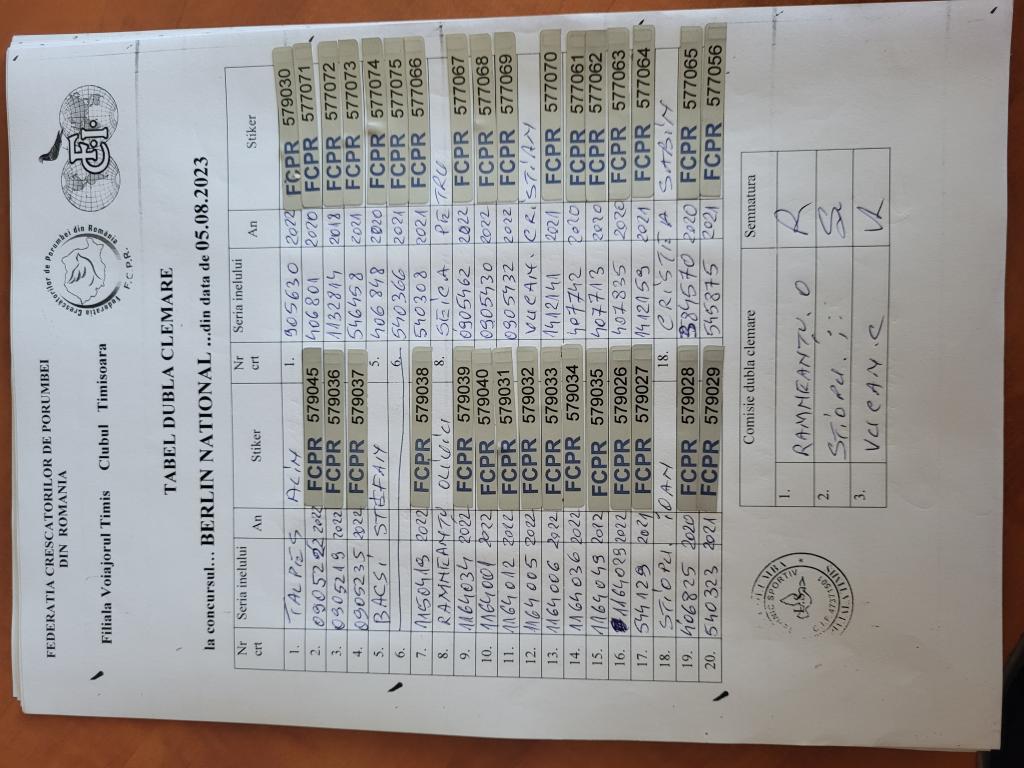 FEDERATIA CRESCATORILOR DE PORUMBEI
DIN ROMANIA
Filiala Voiajorul Timis Clubul Timisoara
Federatia Crescatorilor de Porumbei din România
F.C.P.R.
TABEL DUBLA CLEMARE
la concursul... BERLIN NATIONAL ...din data de 05.08.2023
Nr crt Seria inelului An Stiker Nr crt Seria inelului An Stiker
1. TALPEȘ ALIN 1. 905630 2022 FCPR 579030
2. 0905222 2022 FCPR 579045 406801 2020 FCPR 577071
3. 0905219 2022 FCPR 579036 1132814 2018 FCPR 577072
4. 0905235 2022 FCPR 579037 546458 2021 FCPR 577073
5. BACSI STEFAN 5. 406848 2020 FCPR 577074
6. 6. 540366 2021 FCPR 577075
7. 1150419 2022 FCPR 579038 540308 2021 FCPR 577066
8. 8. SEICA PETRU
9. 1164034 2022 FCPR 579039 0905462 2022 FCPR 577067
10. 1164001 2022 FCPR 579040 0905430 2022 FCPR 577068
11. 1164012 2022 FCPR 579031 0905432 2022 FCPR 577069
12. 1164005 2022 FCPR 579032 CRISTIAN
13. 1164006 2022 FCPR 579033 1412141 2021 FCPR 577070
14. 1164036 2022 FCPR 579034 407742 2020 FCPR 577061
15. 1164049 2022 FCPR 579035 407713 2020 FCPR 577062
16. 1164029 2022 FCPR 579026 407835 2020 FCPR 577063
17. 544129 2021 FCPR 579027 1412159 2021 FCPR 577064
18. STIOPU. IOAN 18. CRISTEA SABIN
19. 406825 2020 FCPR 579028 384570 2020 FCPR 577065
20. 540323 2021 FCPR 579029 545875 2021 FCPR 577056
Comisie dubla clemare Semnatura
1. R
2. STIOPU. I
3. VUCAN. C